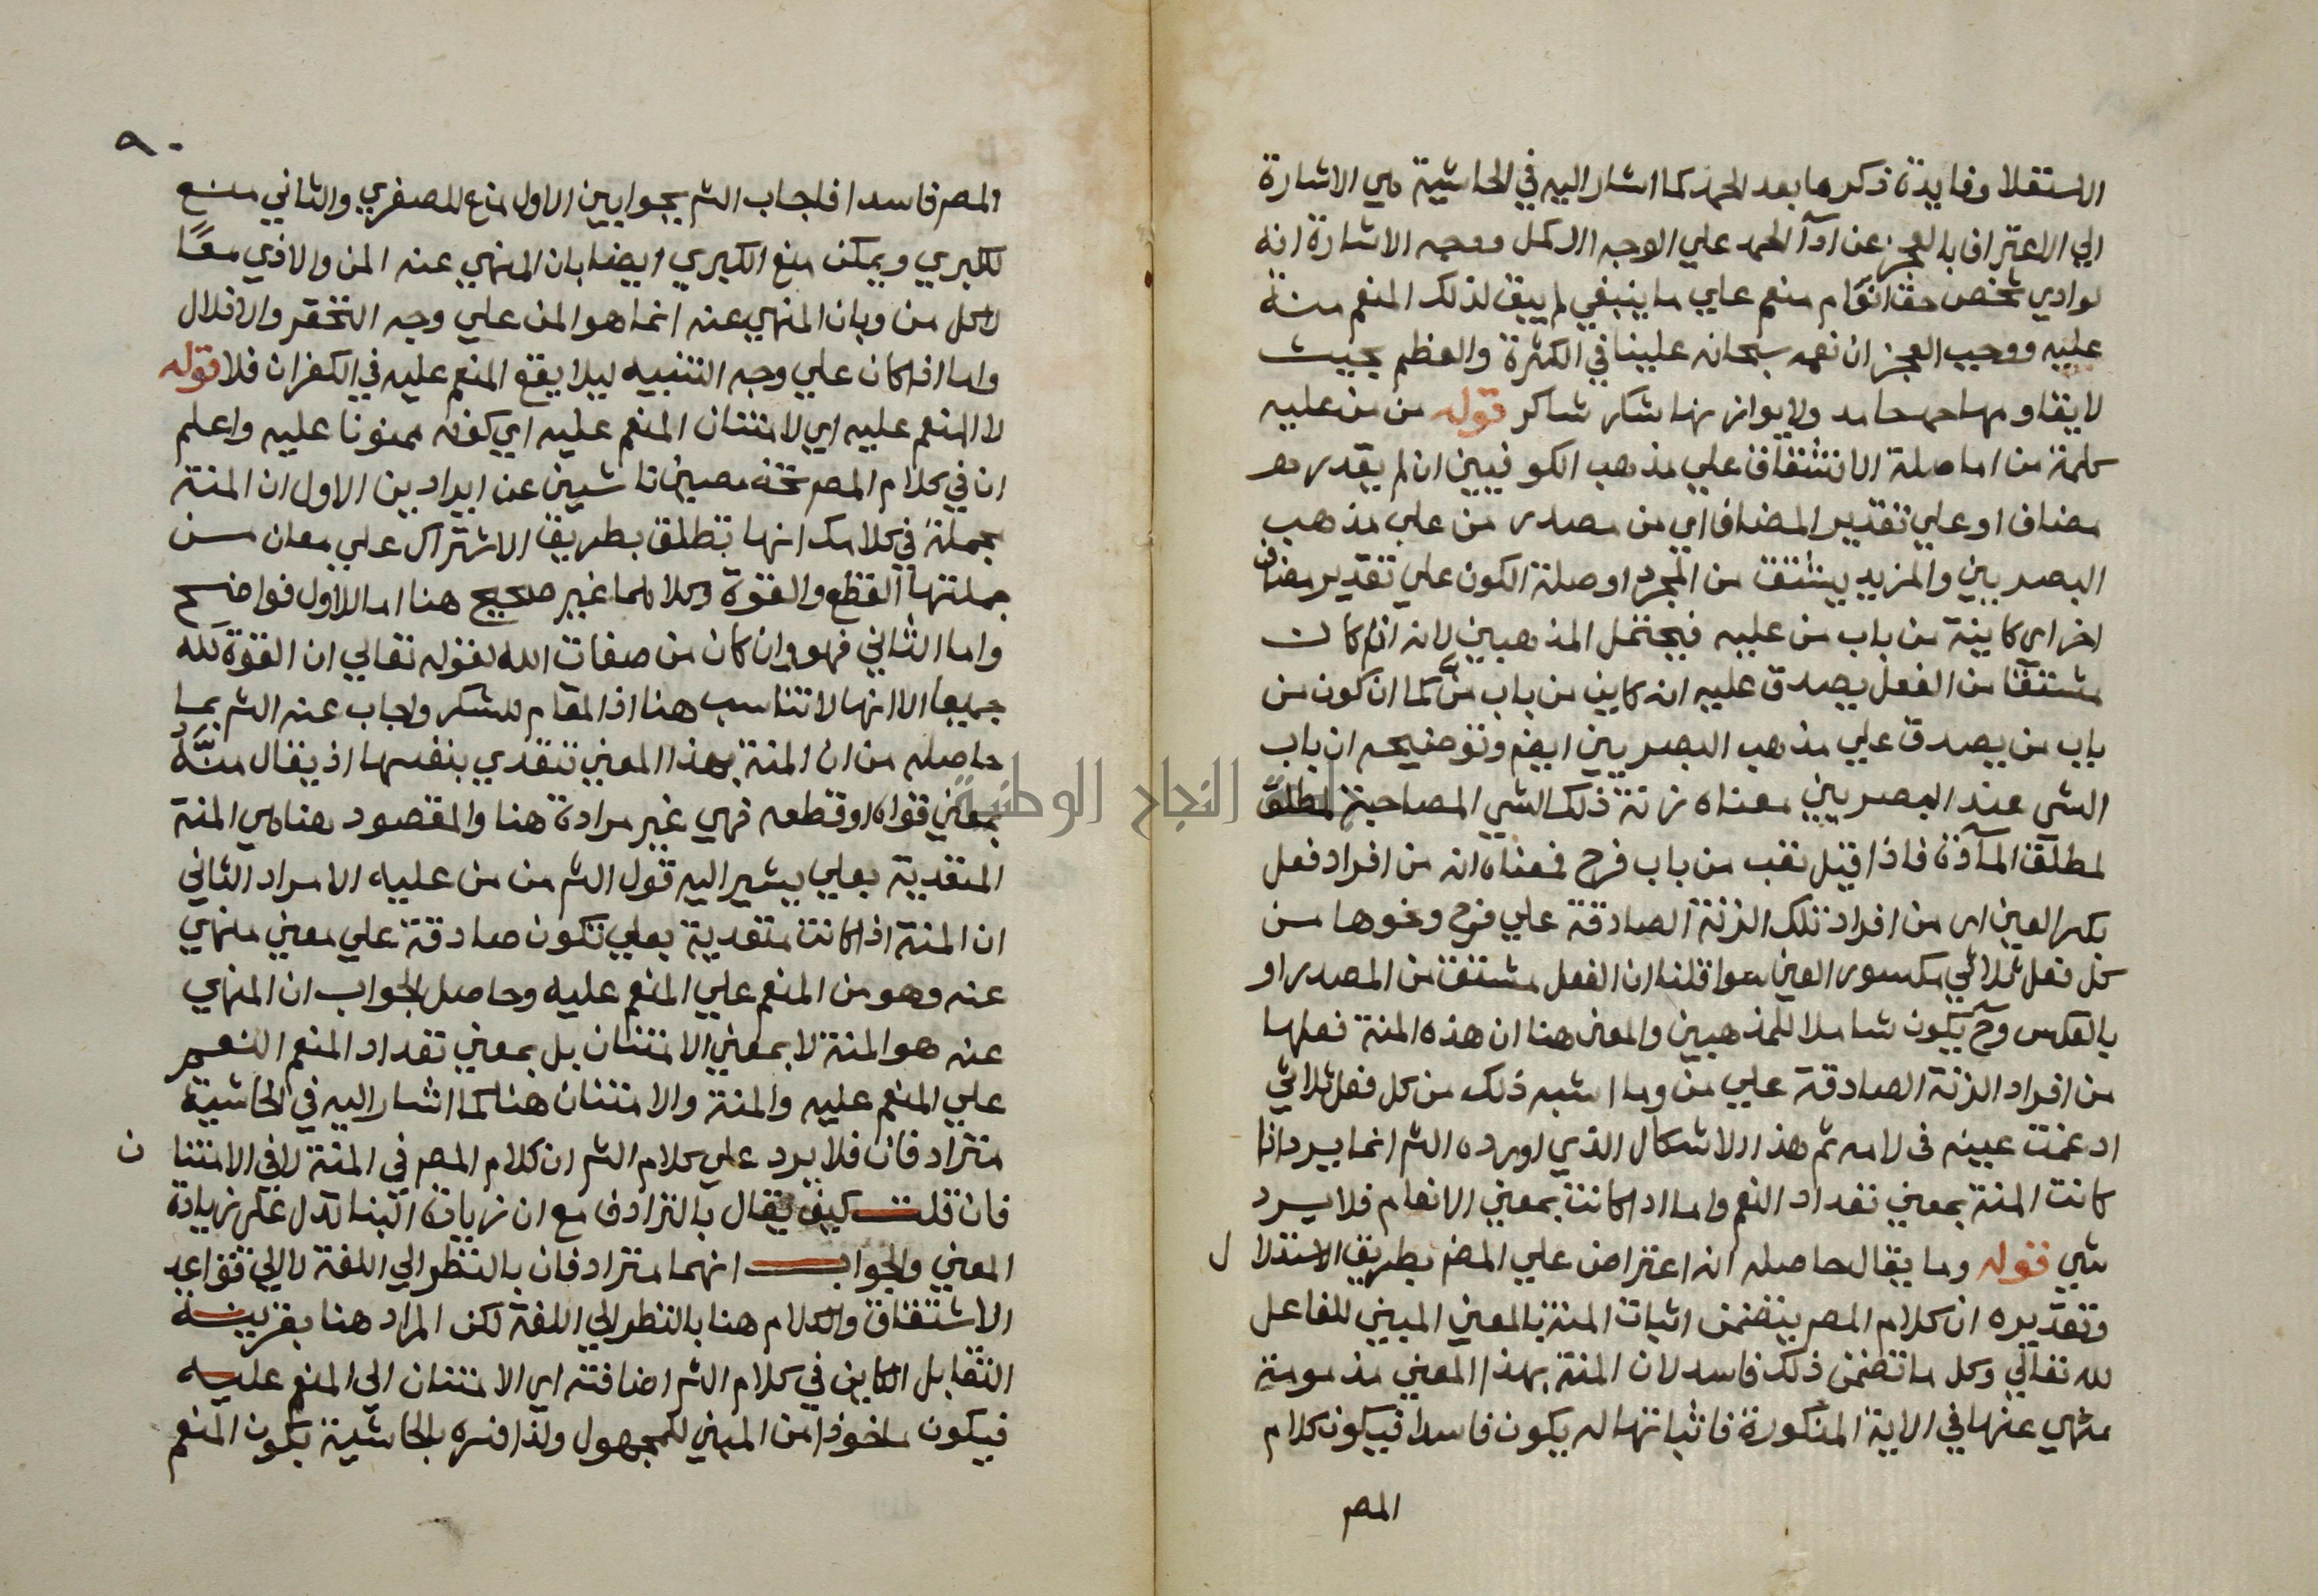 الاستقلا وفايدة ذكرها بعد الحمد كما اشار اليه في الحاشية هي الاشارة
الي الاعتراف بالعجز عن ادآ الحمد علي الوجه الاكمل ووجه الاشارة انه
لو ادي شخص حق انعام منعم علي ما ينبغي لم يبق لذلك المنعم منة
عليه ووجب العجز ان نعمه سبحانه علينا في الكثرة والعظم بحيث
لا يقاومها حمد حامد ولا يوازنها شكر شاكر قوله من من عليه
كلمة من اما صلة الاشتقاق علي مذهب الكوفيين ان لم يقدر
مضاف او علي تقدير المضاف اي من مصدر من علي مذهب
البصريين والمزيد يشتق من المجرد او صلة الكون علي تقدير مضاف
اخر اي كاينة من باب من عليه فيحتمل المذهبين لانه اذا كان
مشتقا من الفعل يصدق عليه انه كاين من باب منّ كما ان كون من
باب من يصدق علي مذهب البصريين ايضم وتوضيحه ان باب
الشي عند البصريين معناه زنة ذلك الشي المصاحبة لمطلق
لمطلق المآدة فاذا قيل نقب من باب فرح فمعناه انه من افراد فعل
بكسر العين اى من افراد تلك الزنة الصادقة علي فرح ونحوها من
كل فعل ثلاثي مكسور العين سوا قلنا ان الفعل مشتق من المصدر او
بالعكس وح يكون شاملا للمذهبين والمعني هنا ان هذه المنة فعلها
من افراد الزنة الصادقة علي من وما اشبه ذلك من كل فعل ثلاثي
ادغمت عينه في لامه ثم هذا الاشكال الذي اورده الشم انما يرد اذا
كانت المنة بمعني تعداد النعم واما اذا كانت بمعني الانعام فلا يرد
شي قوله وما يقال حاصله انه اعتراض علي المصم بطريق الاستدلا ل
وتقديره ان كلام المصم يتضمن اثبات المنة بالمعني المبني للفاعل
لله تعالي وكل ما تضمن ذلك فاسد لان المنة بهذا المعني مذمومة
منهي عنها في الاية المذكورة فاثباتها له يكون فاسدا فيكون كلام
المصم
٩٠
المصم فاسدا فاجاب الشم بجوابين الاول منع للصغري والثاني منع
للكبري ويمكن منع الكبري ايضا بان المنهي عنه المن والاذي معًا
لا كل من وبان المنهي عنه انما هو المن علي وجه التحقر والاذلال
واما اذا كان علي وجه التنبيه ليلا يقع المنعم عليه في الكفران فلا قوله
لا المنعم عليه اي لامتنان المنعم عليه اي كونه ممنونا عليه واعلم
ان في كلام المصم ناشيين عن ايرادين الاول ان المنة
بجملة في كلامك انها تطلق بطريق الاشتراك علي معان من
جملتها القطع والقوة وكلاهما غير صحيح هنا اما الاول فواضح
واما الثاني فهو وان كان من صفات الله لقوله تعالي ان القوة لله
جميعا الا انها لا تناسب هنا اذ المقام للشكر واجاب عنه الشم بما
حاصله من ان المنة بهذا المعني تتعدي بنفسها اذ يقال منّهُ
بمعني قواه او قطعه فهي غير مرادة هنا والمقصود هنا هي المنة
المتعدية بعلي يشير اليه قول الشم من من عليه الايراد الثاني
ان المنة اذا كانت متعدية بعلي تكون صادقة علي معني منهي
عنه وهو من المنعم علي المنعم عليه وحاصل الجواب ان المنهي
عنه هو المنة لا بمعني الامتنان بل بمعني تعداد المنعم النعم
علي المنعم عليه والمنة والامتنان هنا كما اشار اليه في الحاشية
مترادفان فلا يرد علي كلام الشم ان كلام المصم في المنة لا في الامتنا ن
فان قلت كيف يقال بالترادف مع ان زيادة البنا تدل علي زيادة
المعني والجواب انهما مترادفان بالنظر الي اللغة لا الي قواعد
الاشتقاق والكلام هنا بالنظر الي اللغة لكن المراد هنا بقرينة
التقابل الكاين في كلام الشم اضافته اي الامتنان الي المنعم عليه
فيكون ماخوذا من المبني للمجهول ولذا فسره بالحاشية بكون المنعم
النجاح الوطنية